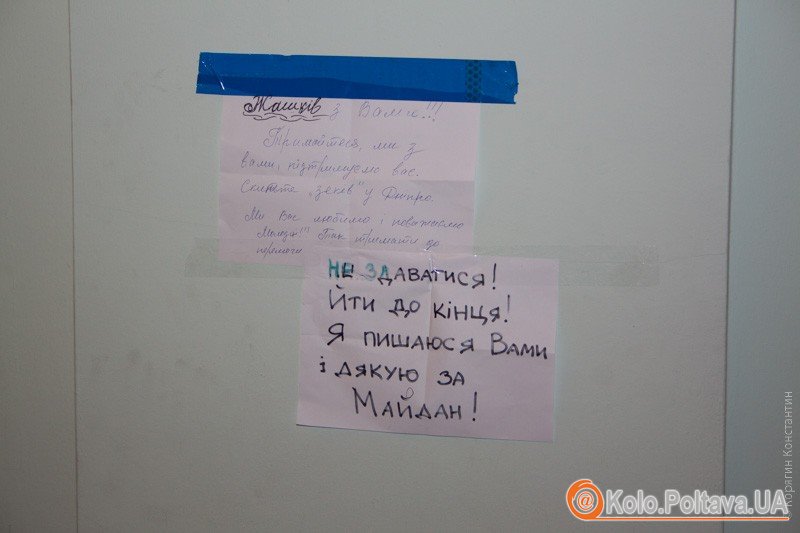 Жашків з Вами!!!
Тримайтеся, ми з
вами, підтримуємо вас.
Скиньте "зеків" у Дніпро.
Ми Вас любимо і поважаємо
Молодці!!! Так тримати до
перемоги
НЕ ЗДАВАТИСЯ!
ЙТИ ДО КІНЦЯ!
Я ПИШАЮСЯ ВАМИ
і ДЯКУЮ ЗА
МАЙДАН!
@Kolo.Poltava.UA
© Корягин Константин